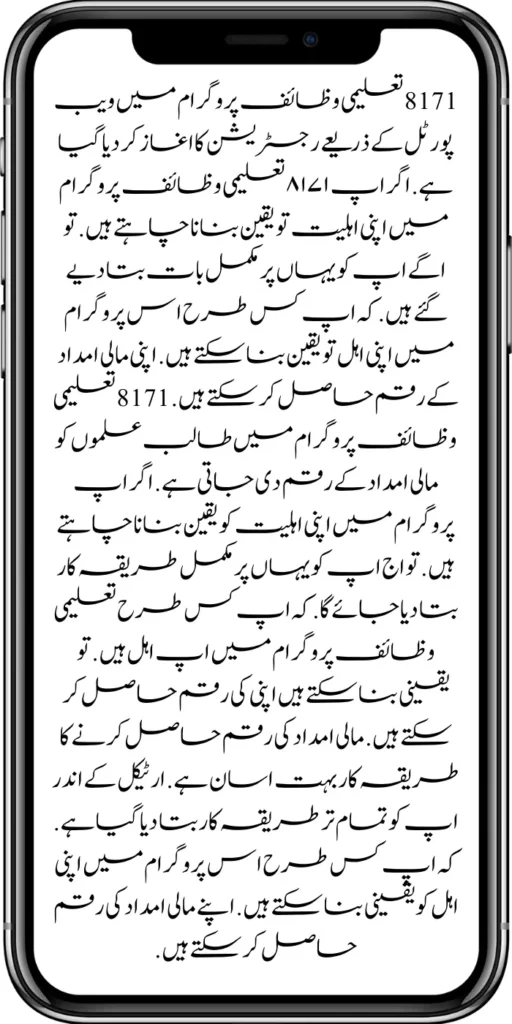 8171 تعلیمی وظائف پروگرام میں ویب
پورٹل کے ذریعے رجسٹریشن کا اغاز کر دیا گیا
ہے. اگر اپ ۸۱۷۱ تعلیمی وظائف پروگرام
میں اپنی اہلیت تو یقین بنانا چاہتے ہیں. تو
اگے اپ کو یہاں پر مکمل بات بتا دیے
گئے ہیں. کہ اپ کس طرح اس پروگرام
میں اپنی اہل تو یقین بنا سکتے ہیں. اپنی مالی امداد
کے رقم حاصل کر سکتے ہیں. 8171 تعلیمی
وظائف پروگرام میں طالب علموں کو
مالی امداد کے رقم دی جاتی ہے. اگر اپ
پروگرام میں اپنی اہلیت کو یقین بنانا چاہتے
ہیں. تو اج اپ کو یہاں پر مکمل طریقہ کار
بتا دیا جائے گا. کہ اپ کس طرح تعلیمی
وظائف پروگرام میں اپ اہل ہیں. تو
یقینی بنا سکتے ہیں اپنی کی رقم حاصل کر
سکتے ہیں. مالی امداد کی رقم حاصل کرنے کا
طریقہ کار بہت اسان ہے. ارٹیکل کے اندر
اپ کو تمام تر طریقہ کار بتا دیا گیا ہے.
کہ اپ کس طرح اس پروگرام میں اپنی
اہل کو یقینی بنا سکتے ہیں. اپنے مالی امداد کی رقم
حاصل کر سکتے ہیں.